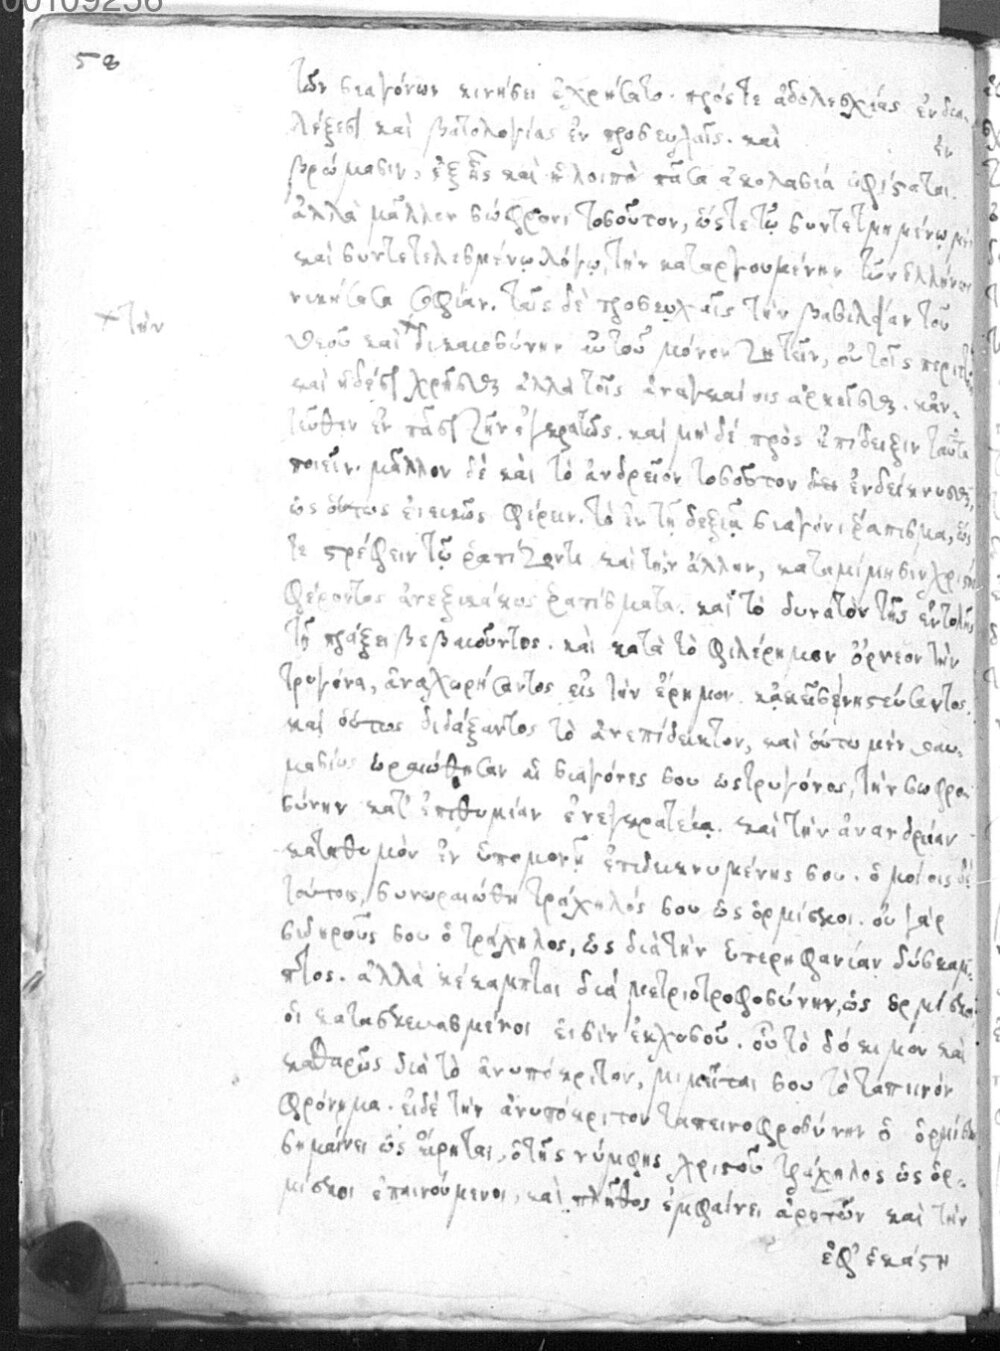 00109256
58
τῶν σιαγόνων κινήσει ἐχρήσατο. πρός τε ἀδολεσχίας ἐν δια-
λέξεσι καὶ βατολογίας ἐν προσευχαῖς. καὶ ἐν
βρώμασιν, ἐξ ἧς καὶ ἡ λοιπὸ πᾶσα ἀκολασία ὑφίσταται.
ἀλλὰ μᾶλλον σώφρονι τοσοῦτον, ὥστε τῷ συντετμημένῳ
καὶ συντετελεσμένῳ λόγῳ, τὴν καταργουμένην τῶν ἑλλήνων
νικήσασα σοφίαν. ταῖς δὲ προσευχαῖς τὴν βασιλείαν τοῦ
+ τὴν
θεοῦ καὶ + δικαιοσύνην αὐτοῦ μόνον ζητεῖν, οὐ τοῖς περιττοῖς
καὶ ἡδέσι χρῆσθαι ἀλλὰ τοῖς ἀναγκαίοις ἀρκεῖσθαι. κἀν-
τεῦθεν ἐν πᾶσι ζῆν ἐγκρατῶς. καὶ μηδὲ πρὸς ἐπίδειξιν ταῦτα
ποιεῖν. μᾶλλον δὲ καὶ τὸ ἀνδρεῖον τοσοῦτον ἐνδείκνυσθαι,
ὡς οὕτως ἐπιεικῶς φέρειν. τὸ ἐν τῇ δεξιᾷ σιαγόνι ῥάπισμα, ὥς
τε στρέφειν τῷ ῥαπίζοντι καὶ τὴν ἄλλην, κατὰ μίμησιν χριστοῦ
φέροντος ἀνεξικάκως ῥαπίσματα. καὶ τὸ δυνατὸν τῆς ἐντολῆς
τῇ πράξει βεβαιοῦντος. καὶ κατὰ τὸ φιλέρημον ὄρνεον τὴν
τρυγόνα, ἀναχωρήσαντος εἰς τὴν ἔρημον κἀκεῖσε νηστεύσαντος.
καὶ οὕτως διδάξαντος τὸ ἀνεπίδεικτον, καὶ οὕτω μὲν θαυ-
μασίως ὡραιώθησαν αἱ σιαγόνες σου ὡς τρυγόνος, τὴν σωφρο-
σύνην κατ' ἐπιθυμίαν ἐν ἐγκρατείᾳ. καὶ τὴν ἀνανδρίαν
κατὰ θυμὸν ἐν ὑπομονῇ ἐπιδεικνυμένης σου. ὁμοίοις δὲ
τούτοις, συνωραιώθη τράχηλός σου ὡς ὁρμίσκοι. οὐ γὰρ
σιδηροῦς σου ὁ τράχηλος, ὡς διὰ τὴν ὑπερηφανίαν δύσκαμ-
πτος. ἀλλὰ κέκαμπται διὰ μετριοφροσύνην, ὡς ὁρμίσκοι
οἱ κατασκευασμένοι εἰσὶν ἐκ χρυσοῦ. οὗ τὸ δόκιμον καὶ
καθαρὸν διὰ τὸ ἀνυπόκριτον, μιμεῖται σου τὸ ταπεινόν
φρόνημα. εἰ δὲ τὴν ἀνυπόκριτον ταπεινοφροσύνην ὁ ὁρμίσκος
σημαίνει ὡς εἴρηται, ὁ τῆς νύμφης χριστοῦ τράχηλος ὡς ὁρ-
μίσκοι ἐπαινούμενοι, καὶ πλῆθος ἐμφαίνει ἀρετῶν καὶ τὴν
ἐφ' ἑκάστη